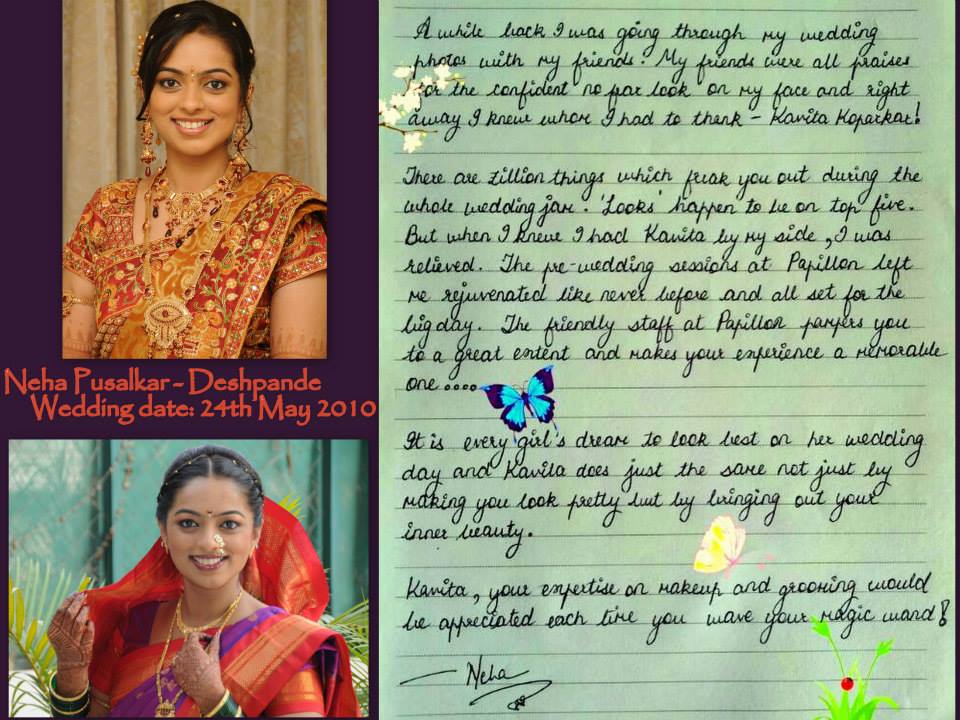 Neha Pusalkar - Deshpande
Wedding date: 24th May 2010
A while back I was going through my wedding
photos with my friends. My friends were all praises
for the confident 'no fear look' on my face and right
away I knew whom I had to thank - Kavita Koparkar!
There are zillion things which freak you out during the
whole wedding jam. 'Looks' happen to be on top five.
But when I knew I had Kavita by my side, I was
relieved. The pre-wedding sessions at Papillon left
me rejuvenated like never before and all set for the
big day. The friendly staff at Papillon pampers you
to a great extent and makes your experience a memorable
one....
It is every girl's dream to look best on her wedding
day and Kavita does just the same not just by
making you look pretty but by bringing out your
inner beauty.
Kavita, your expertise on makeup and grooming would
be appreciated each time you wave your magic wand!
- Neha